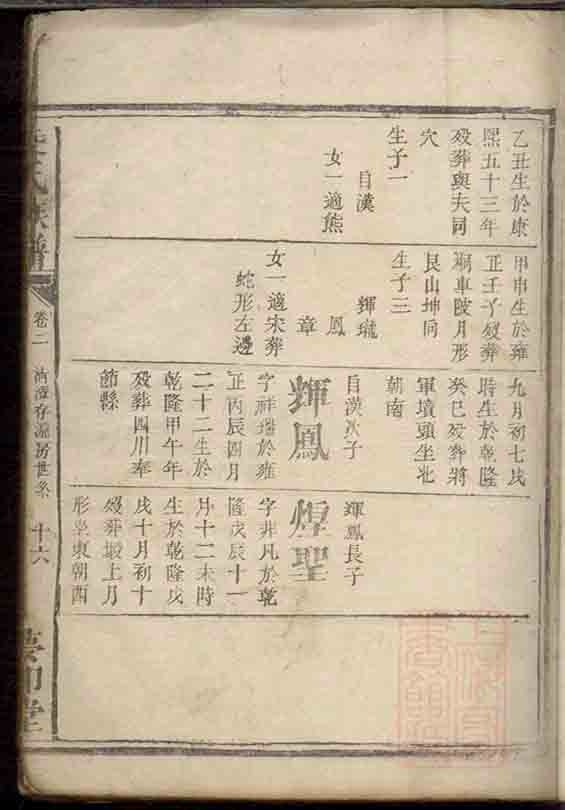 乙丑生於康
熙五十三年
歿葬與夫同
穴
生子一
自漢
女一適熊
甲申生於雍
正壬丫歿葬
車陂月形
艮山坤同
生子三
輝瓏
鳳
章
女一適宋葬
蛇形左邊
九月初七戌
時生於乾隆
癸巳歿葬將
軍墳頭坐北
朝南
自漢次子
輝鳳
字祥瑞於雍
正丙辰四月
二十二生於
乾隆甲午年
歿葬四川奉
節縣
輝鳳長子
煌聖
字非凡於乾
隆戊辰十一
月十二未時
生於乾隆戊
戌十月初十
歿葬塅上月
形坐東朝西
氏族譜
卷二
存源房世系
十六